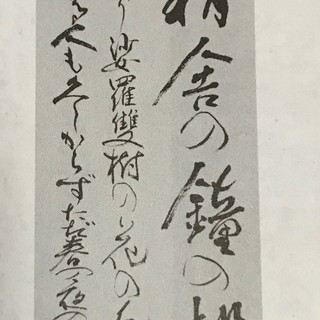 精舎の鐘の
り娑羅雙樹の花の
る人も久しからずただ春の夜の